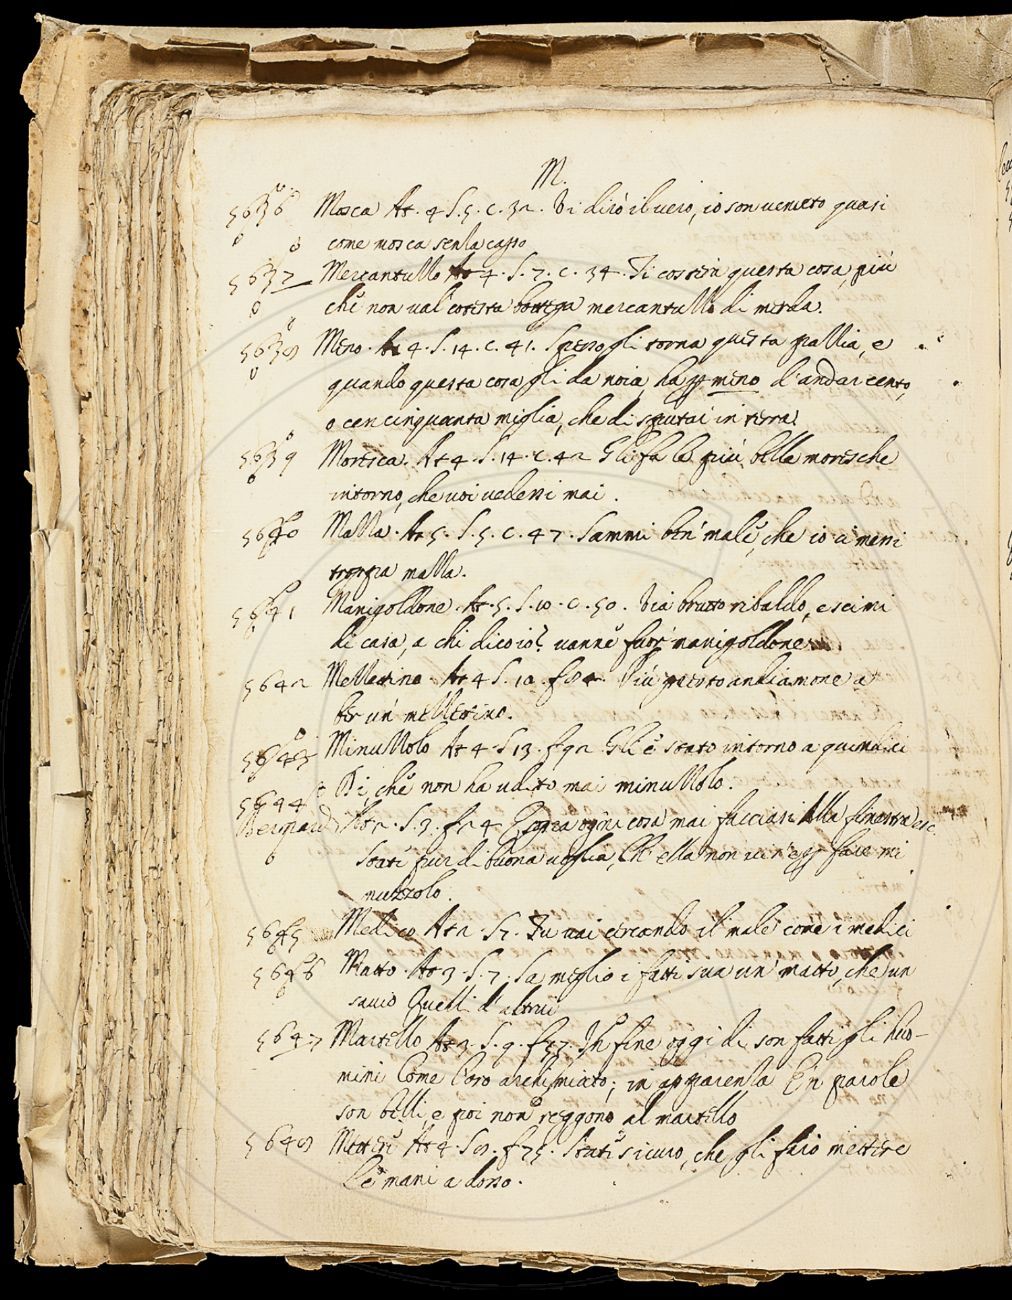 M.
5636 Mosca At. 4 S. 5. c. 32. Vi dirò il vero, io son venuto quasi
come mosca senza capo
5637 Mercantullo At 4. S. 7. c. 34. Ti costerà questa cosa, più
che non val cotesta bottega mercantullo di merda.
5638 Meno. At. 4. S. 14. c. 41. Spesso gli torna questa pazzia, e
quando questa cosa gli da noia ha p meno d'andar cento,
o cencinquanta miglia, che di sputar in terra.
5639 Moresca. At 4. S. 14. c. 42 Gli fa le più belle moresche
intorno, che voi vedessi mai.
5640 Mazza. At 5. S. 5. c. 47. Sammi ben male, che io ci meni
troppa mazza.
5641 Manigoldone. At. 5. S. 10. c. 50. Via brutto ribaldo, escimi
di casa, a chi dico io? vanne fuor manigoldone.
5642 Mezzetino. At 4 S. 10. f84. Più presto andiamone a
ber un mezzetino.
5643 Minuzzolo At 4 S. 13. f92 Gli è stato intorno a quindici
Dì che non ha udito mai minuzzolo.
5644
Bernard. At 2. S. 3. f24 Sopra ogni cosa mai facciasi alla finestra, e se
statti fuor di buona voglia, Ch' ella non ne n'è p fare mi
nuzzolo.
5645 Medico At 2. S7. Tu vai cercando il male come i medici
5646 Matto. At 3. S. 7. Sa meglio i fatti sua un matto, che un
savio Quelli d'altrui
5647 Martello At 3. S. 9. f57. In fine oggi dì son fatti gli huo-
mini Come l'oro archimiato; in apparenza En parole
son belli e poi non reggono al martello
5648 Mettere At 4. S8. f75. State sicuro, che gli farò mettere
Le mani a dosso.